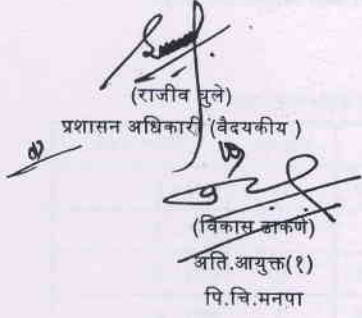 (राजीव घुले)
प्रशासन अधिकारी (वैदयकीय )
(विकास ढाकणे)
अति.आयुक्त(१)
पि.चि.मनपा